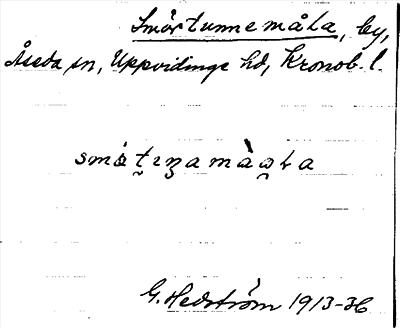 Smörtunnemåla, by,
Åseda sn, Uppvidinge hd, Kronob. l.
G. Hedström 1913-36